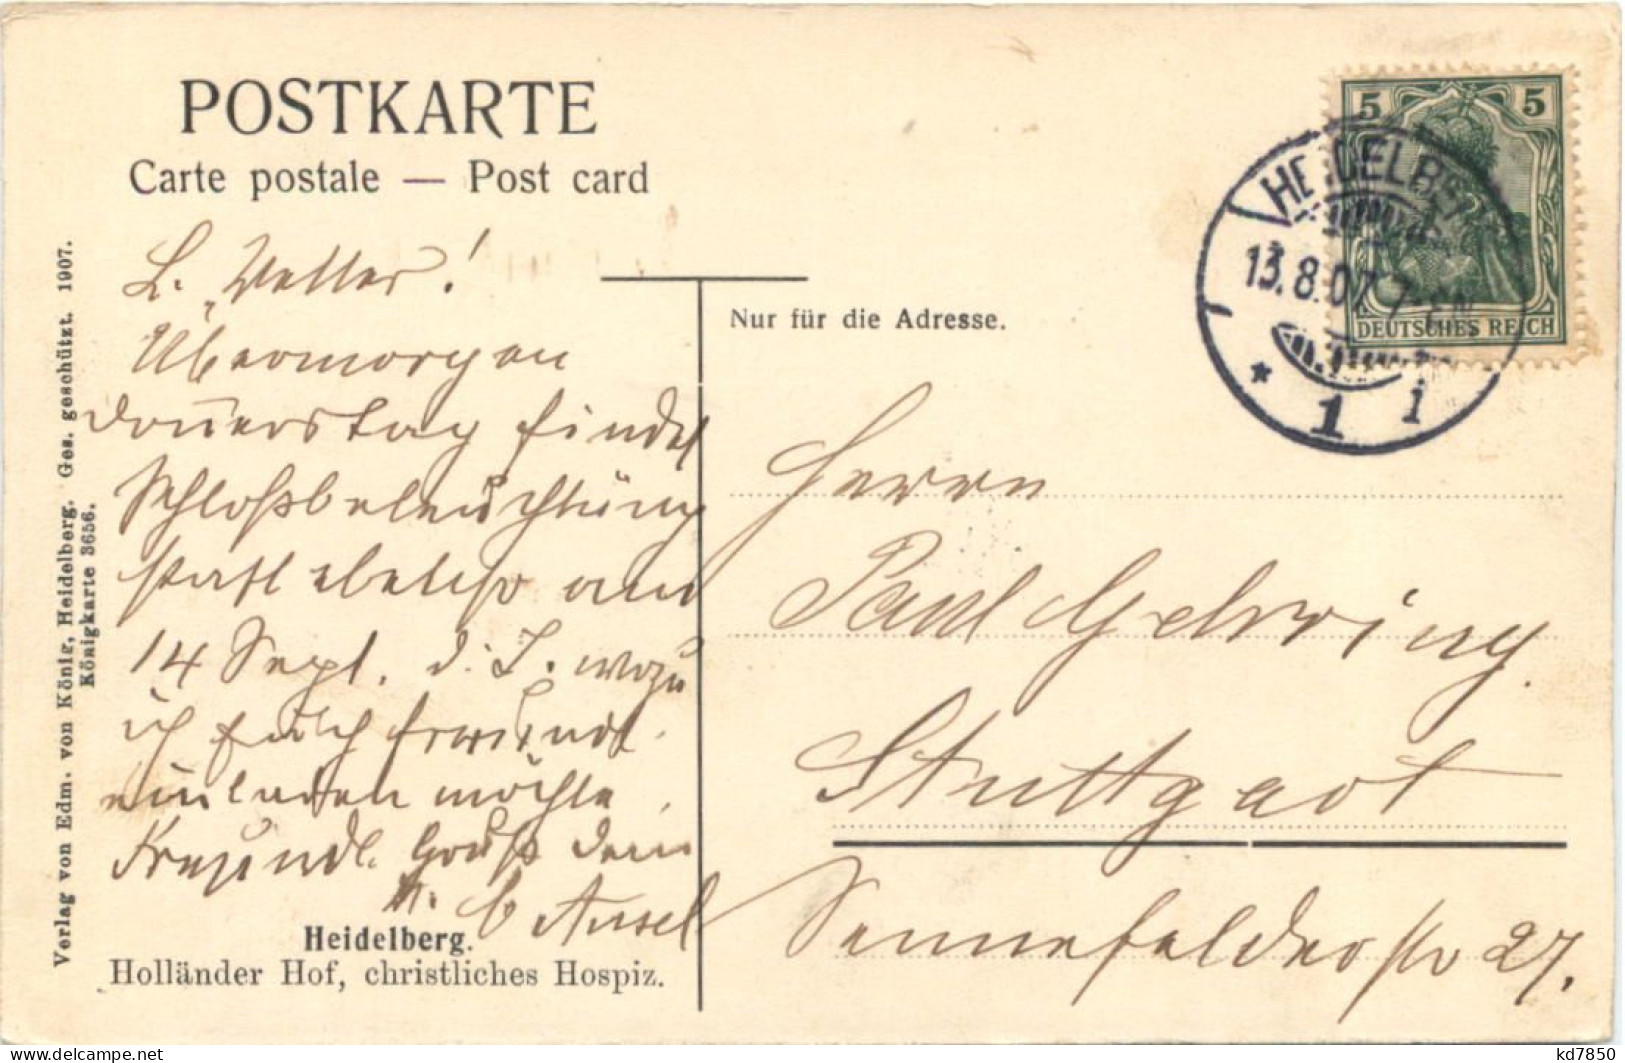 POSTKARTE
Carte postale — Post card
L. Vetter!
Übermorgen
Donnerstag findet
Schloßbeleuchtung
statt ebenso am
14 Sept. d. J. wozu
ich Euch freundl.
einladen möchte.
Freundl. Gruß Dein
Ansel
Heidelberg.
Holländer Hof, christliches Hospiz.
Verlag von Edm. von König, Heidelberg. Ges. geschützt. 1907.
Königkarte 3656.
5 5
DEUTSCHES REICH
HEIDELBERG
13.8.07. 7-8N
* 1 i
Nur für die Adresse.
Herrn
Paul Gehring
Stuttgart
Sennefelderstr 27.
kd7850
delcampe.net